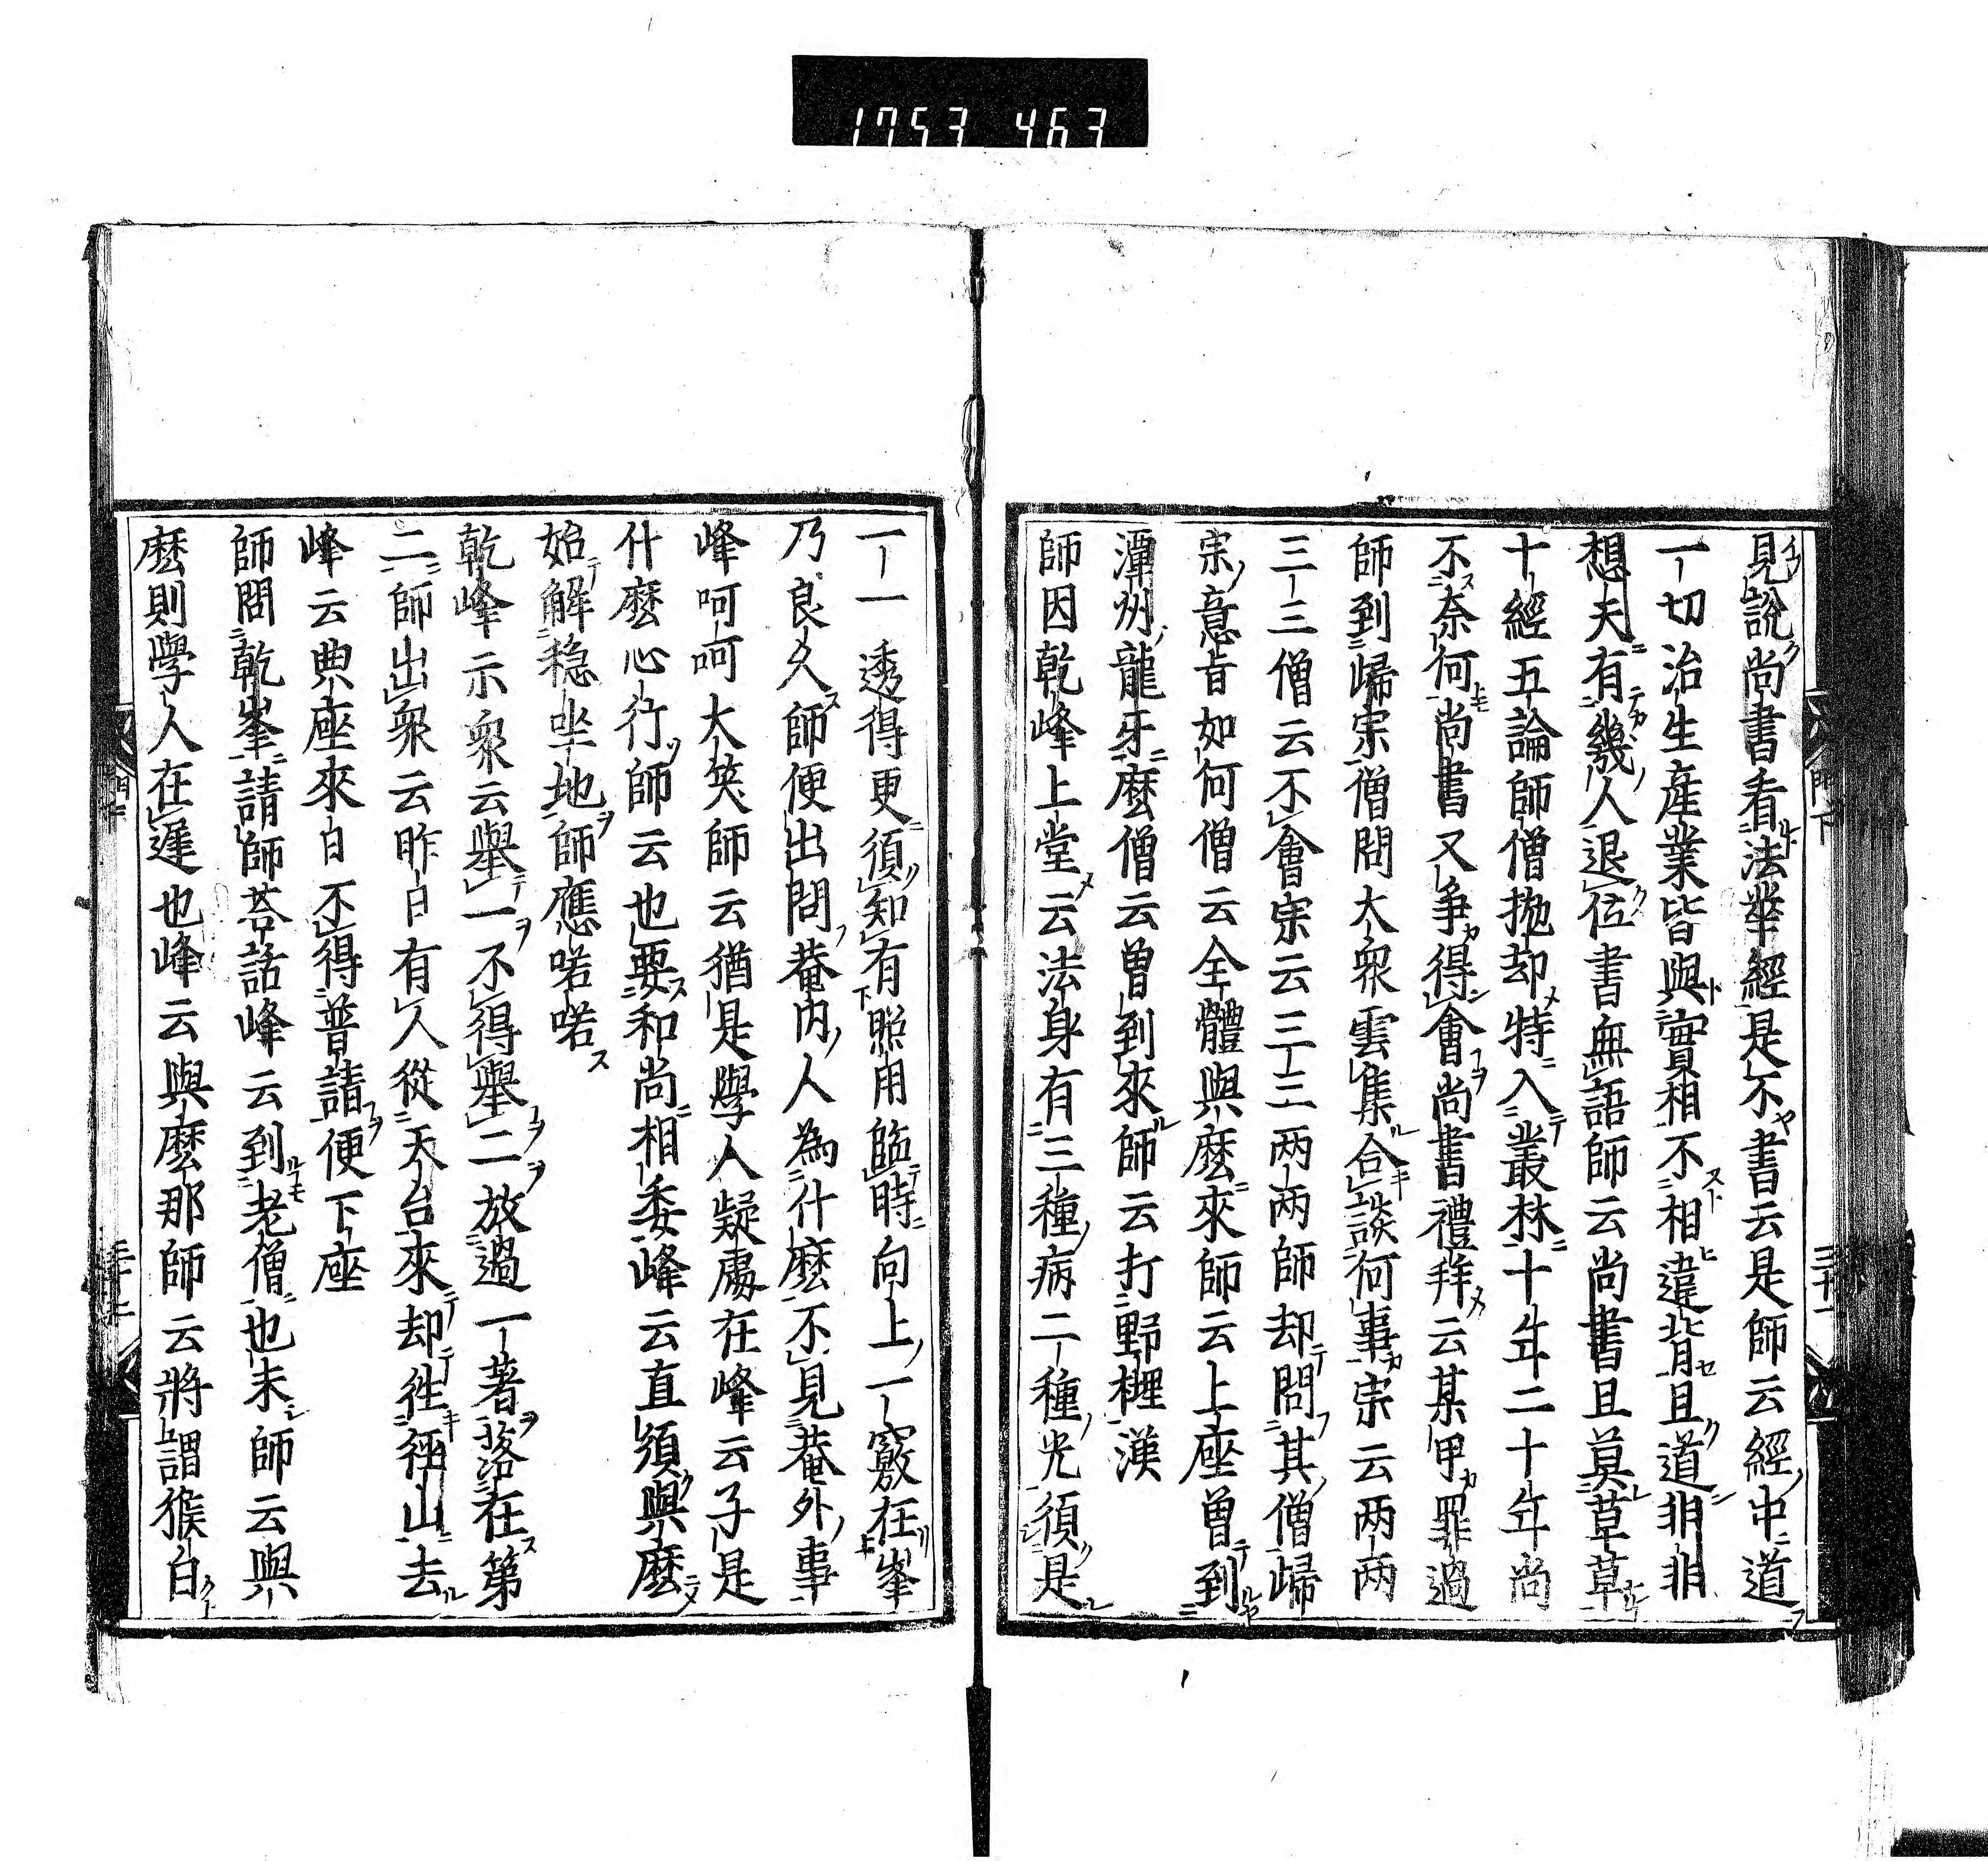 1753 463
見說尚書看法華經是不書云是師云經中道
一切治生產業皆與實相不相違背且道非非
想天有幾人退位書無語師云尚書且莫草草
十經五論師僧拋却特入叢林十年二十年尚
不奈何尚書又爭得會尚書禮拜云某甲罪過
師到歸宗僧問大衆雲集合談何事宗云两两
三三僧云不會宗云三三两两師却問其僧歸
宗意旨如何僧云全體與麽來師云上座曾到
潭州龍牙麽僧云曾到來師云打野榸漢
師因乾峰上堂云法身有三種病二種光須是
一一透得更須知有照用臨時向上一竅在峯
乃良久師便出問菴内人為什麽不見菴外事
峰呵呵大笑師云猶是學人疑處在峰云子是
什麽心行師云也要和尚相委峰云直須與麽
始解穏坐地師應喏喏
乾峰示衆云舉一不得舉二放過一著落在第
二師出衆云昨日有人從天台來却徃徑山去
峰云典座來日不得普請便下座
師問乾峯請師荅話峰云到老僧也未師云與
麽則學人在遲也峰云與麽那師云將謂猴白